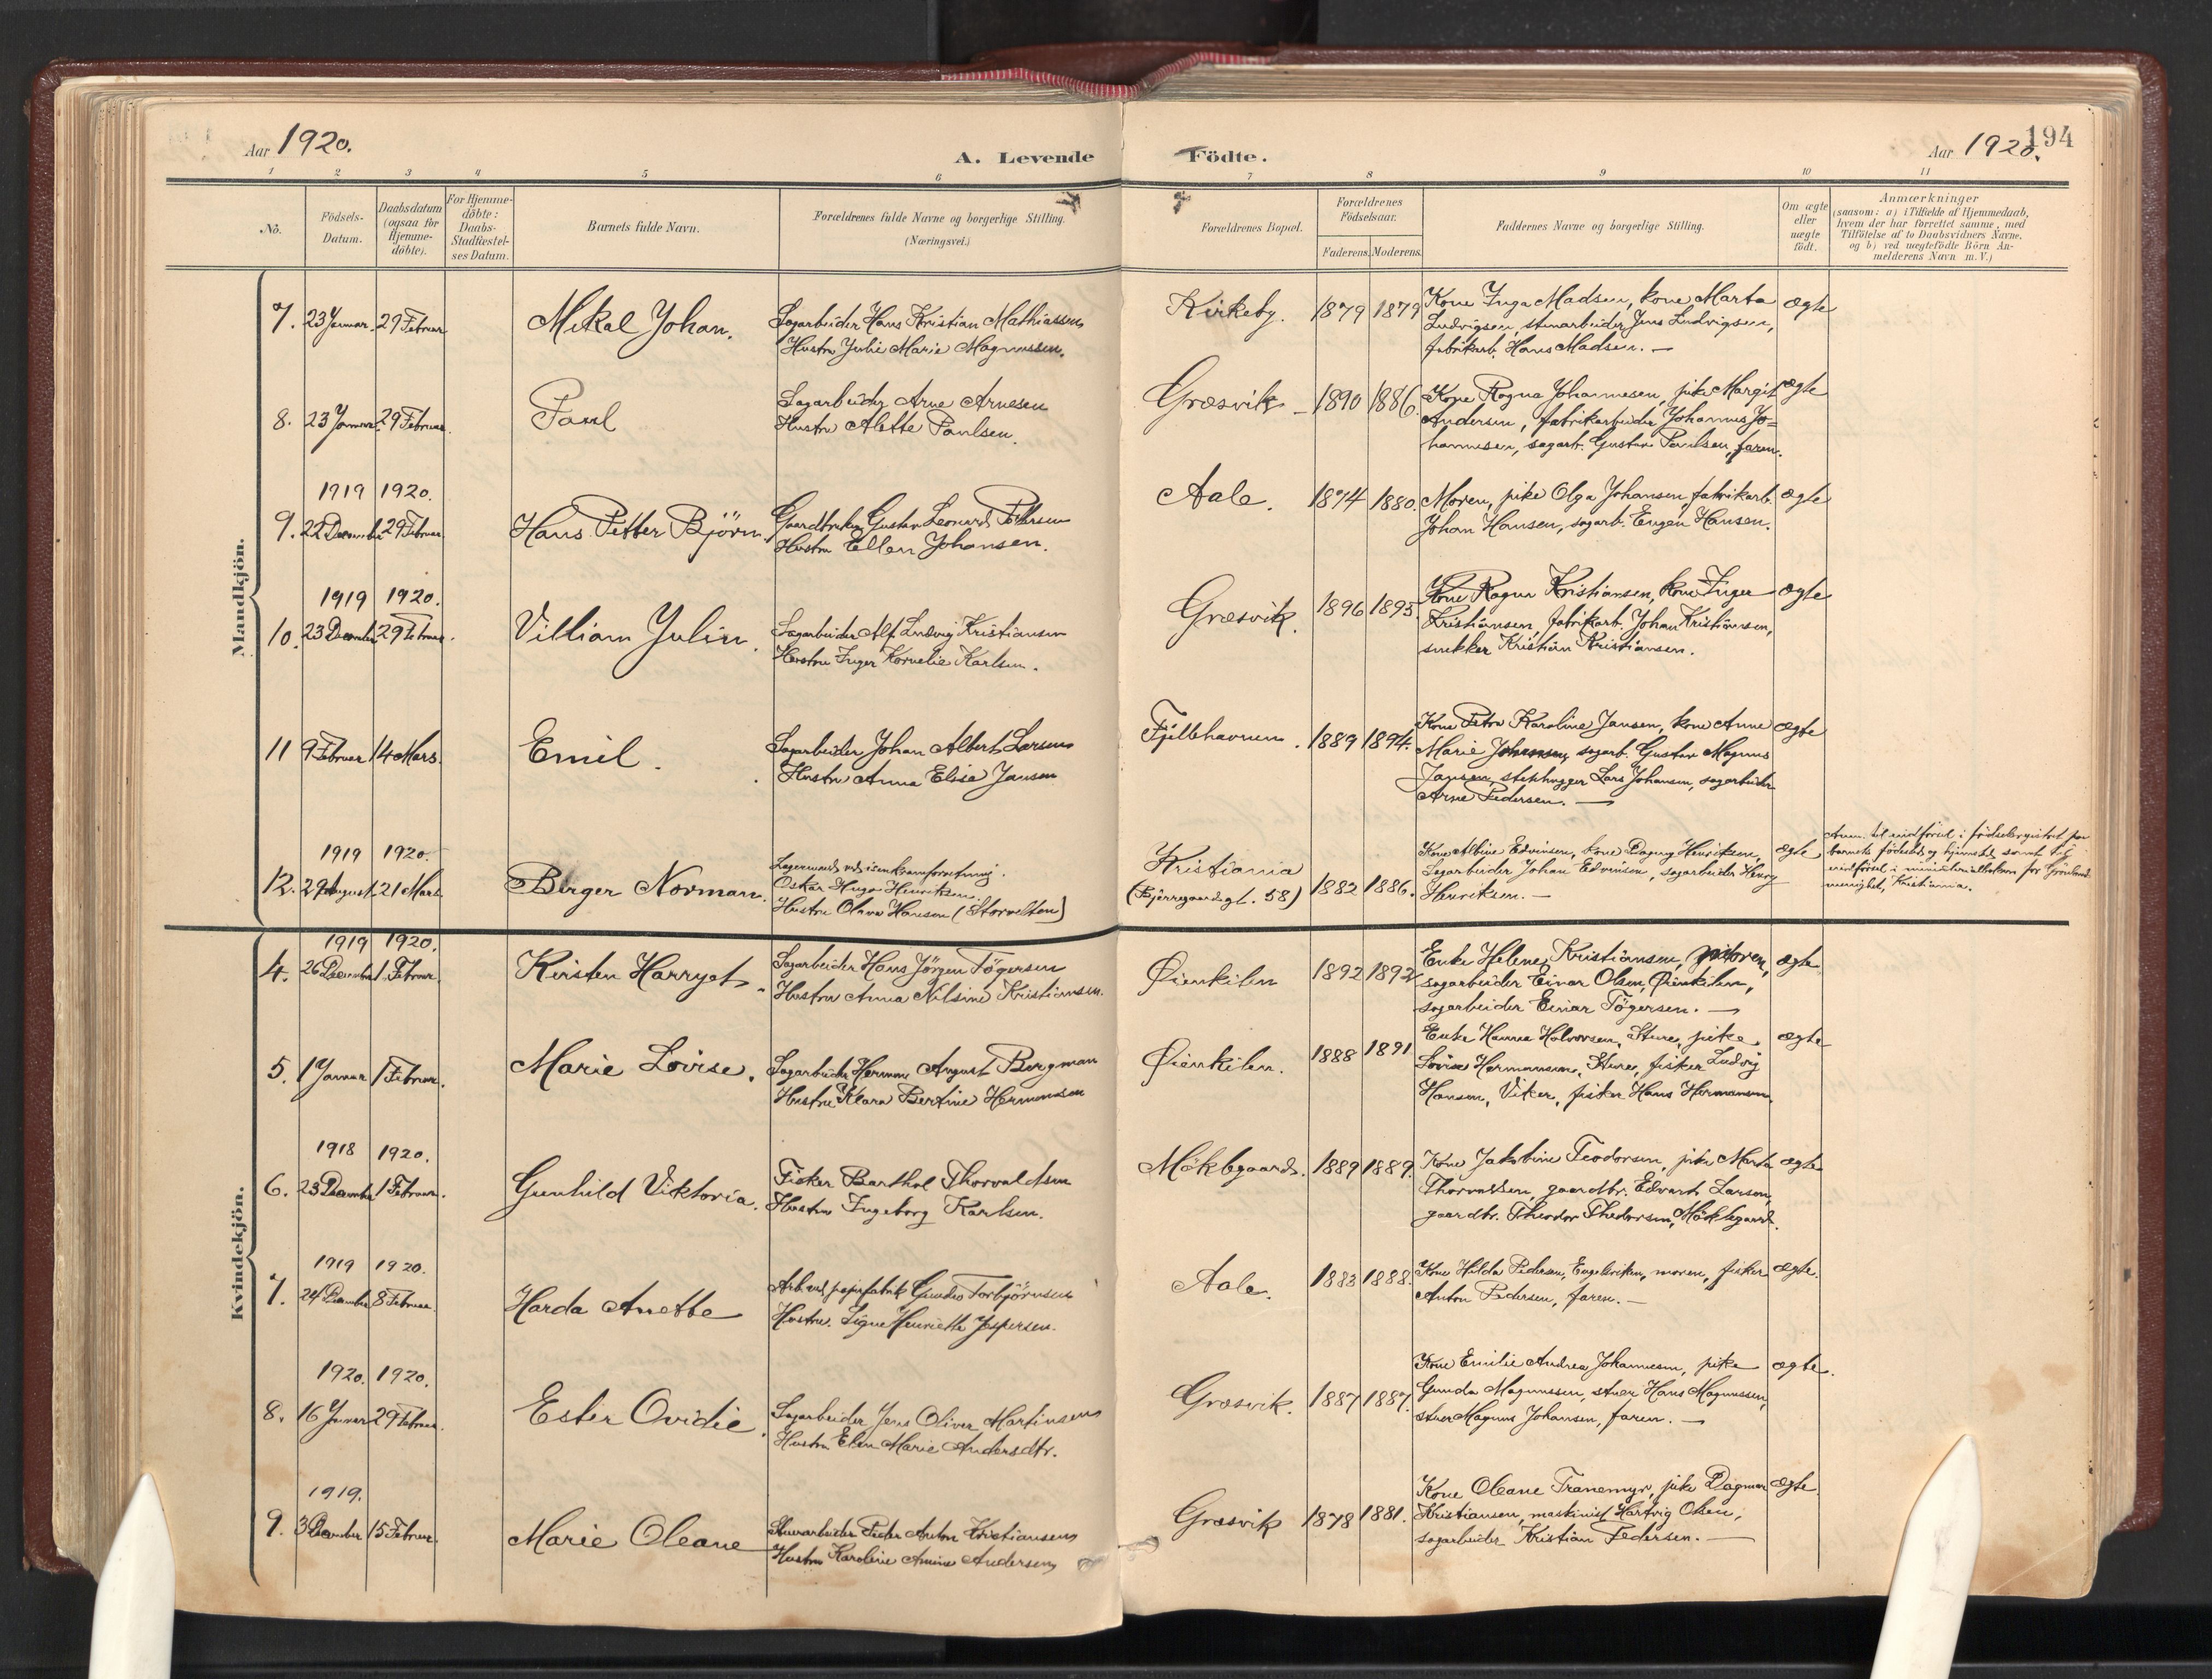 Aar 1920.
A. Levende Födte.
Aar 1920.
194
1 2 3 4 5 6 7 8 9 10 11
No.
Födsels-
Datum.
Daabsdatum
(ogsaa for
Hjemme-
döbte).
For Hjemme-
döbte:
Daabs-
Stadfæstel-
ses Datum.
Barnets fulde Navn.
Forældrenes fulde Navne og borgerlige Stilling.
(Næringsvei.)
Forældrenes Bopæl.
Forældrenes
Födselsaar.
Faderens. Moderens.
Faddernes Navne og borgerlige Stilling.
Om ægte
eller
uægte
födt.
Anmærkninger
(saasom: a) i Tilfælde af Hjemmedaab,
hvem der har forrettet samme, med
Tilföielse af to Daabsvidners Navne,
og b) ved uægtefödte Börn An-
melderens Navn m. V.)
Mandkjön.
7. 23 Januar. 29 Februar. Mikal Johan.
Sagarbeider Hans Kristian Mathiassen
Hustru Julie Marie Magnussen.
Kirkeby. 1879 1879
Kone Inga Madsen, kone Marta
Ludvigsen, stenarbeider Jens Ludvigsen,
fabrikarb. Hans Madsen. —
ægte
8. 23 Januar. 29 Februar. Paul
Sagarbeider Arne Arnesen
Hustru Alette Paulsen.
Græsvik 1890 1886.
Kone Ragna Johannesen, pike Margit
Andersen, fabrikarbeider Johannes Jo=
hannesen, sagarb. Gustav Paulsen, faren.
ægte
1919 1920.
9. 22 December 29 Februar. Hans Petter Björn.
Gaardbruker Gustav Leonard Pettersen
Hustru Ellen Johansen.
Aale. 1874 1880.
Moren, pike Olga Johansen, fabrikarb.
Johan Hansen, sagarb. Eugen Hansen.
ægte
1919 1920.
10. 23 December 29 Februar. Villiam Julin.
Sagarbeider Alf Ludvig Kristiansen
Hustru Inger Kornelie Karlsen.
Græsvik. 1896 1895
Kone Ragna Kristiansen, kone Inger
Kristiansen, fabrikarb. Johan Kristiansen,
snekker Kristian Kristiansen.
ægte
11 9 Februar 14 Mars. Emil.
Sagarbeider Johan Albert Larsen
Hustru Anna Elise Jansen
Fjellehavnen. 1889 1894.
Kone Petra Karoline Jansen, kone Anne
Marie Johansen, sagarb. Gustav Magnus
Jansen, stenhugger Lars Johansen, sagarbeider
Arne Pedersen. —
ægte
1919 1920.
12. 29 August. 21 Mars. Birger Norman.
Lagermand ved isenkramforretning.
Oskar Hugo Henriksen.
Hustru Olava Hansen (Storvelten)
Kristiania
(Bjerregaardsgt. 58) 1882 1886.
Kone Albine Edvinsen, kone Dagny Henriksen,
Sagarbeider Johan Edvinsen, sagarbeider Henry
Henriksen. —
ægte
Anm. til indförsel i födselsregistret paa
barnets födested og hjemsted samt til
indförsel i ministerialboken for Grönlands
menighet, Kristiania.
Kvindekjön.
1919 1920.
4. 26 December 1. Februar. Kirsten Harryet.
Sagarbeider Hans Jörgen Tögersen
Hustru Anna Nilsine Kristiansen.
Öienkilen 1892 1892
Enke Helene Kristiansen, moren,
sagarbeider Einar Olsen, Öienkilen,
sagarbeider Einar Tögersen. —
ægte
5. 1 Januar 1 Februar. Marie Lovise.
Sagarbeider Herman August Bergman
Hustru Klara Bertine Hermansen
Öienkilen. 1888 1891
Enke Hanna Halvorsen, Sture, pike
Lovise Hermansen, Sture, fisker Ludvig
Hansen, Viker, fisker Hans Hermansen.
ægte
1918 1920.
6. 23 December 1 Februar. Gunhild Viktoria.
Fisker Barthol Thorvaldsen
Hustru Ingeborg Karlsen.
Möklegaard. 1889 1889.
Kone Jakobine Teodorsen, pike Marta
Thorvaldsen, gaardbr. Edvart Larsen,
gaardbr. Theodor Thedorsen, Möklegaard.
ægte
1919 1920.
7. 24 December 8 Februar. Harda Anette
Arb. ved papirfabrik Gunder Torbjörnsen
Hustru. Signe Henriette Jespersen.
Aale. 1883 1888.
Kone Hilda Pedersen, Engelsviken, moren, fisker
Anton Pedersen, faren. —
ægte.
1920. 1920.
8. 16 Januar 29 Februar. Ester Ovidie.
Sagarbeider Jens Oliver Martinsen
Hustru Elen Marie Andersdtr.
Græsvik. 1887 1887.
Kone Emilie Andrea Johannesen, pike
Gunda Magnussen, stuer Hans Magnussen,
stuer Magnus Johansen, faren. —
ægte.
1919.
9. 3 December 15 Februar. Marie Oleane
Stuerarbeider Peder Anton Kristiansen
Hustru Karoline Amine Andersen
Græsvik 1878 1881.
Kone Oleane Tranemyr, pike Dagmar
Kristiansen, maskinist Hartvig Olsen,
sagarbeider Kristian Pedersen. —
ægte.